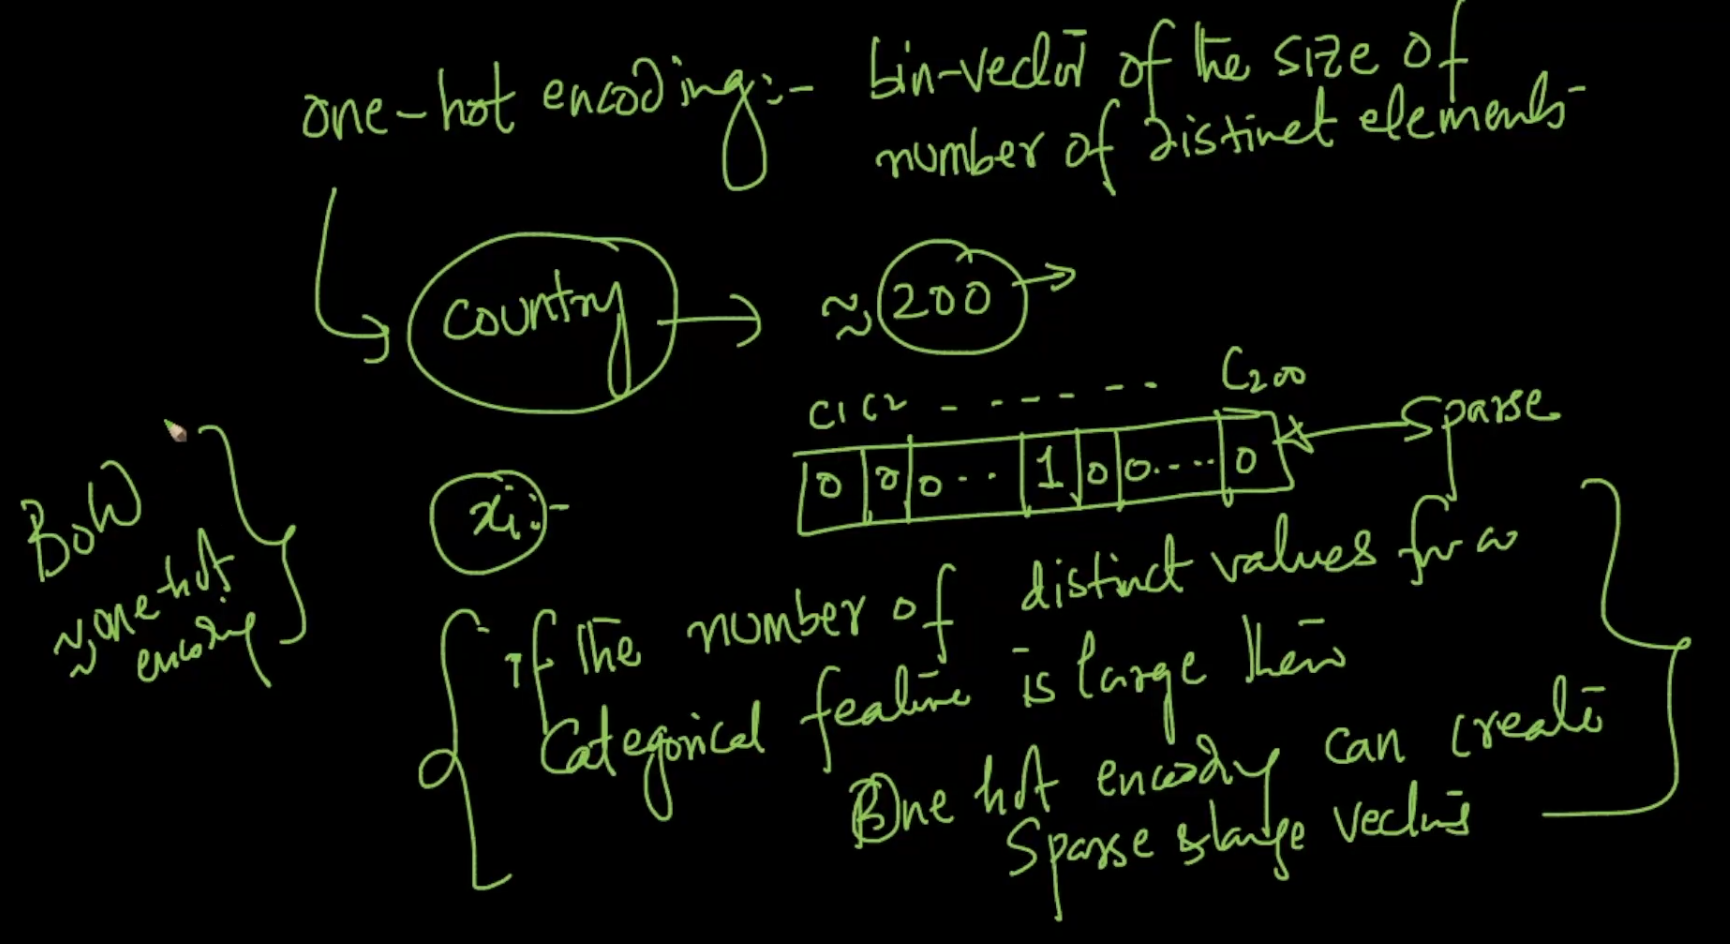 one-hot encoding:- bin-vector of the size of
number of distinct elements
country → ≈ 200 →
C1 C2 - - - - - - C200
0 0 0 . . 1 0 0 . . . . 0 ← Sparse
xi :-
BoW
≈ one hot
encoding
if the number of distinct values for a
Categorical feature is large then
One hot encoding can create
Sparse & large vectors